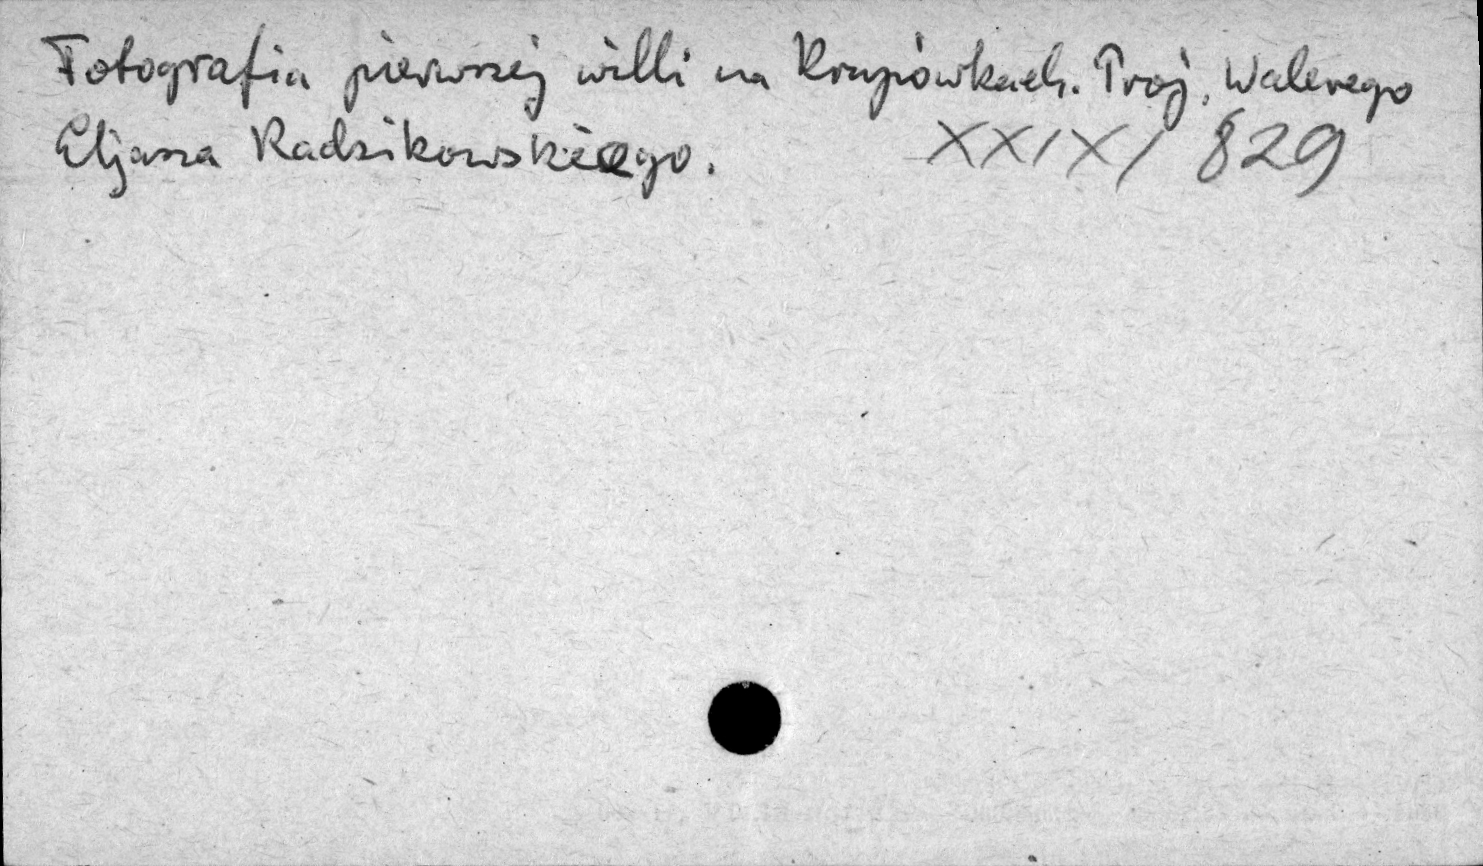 Fotografia pierwszej willi na Krupówkach. Proj. Walerego
Eljasza Radzikowskiego. XXIX/829